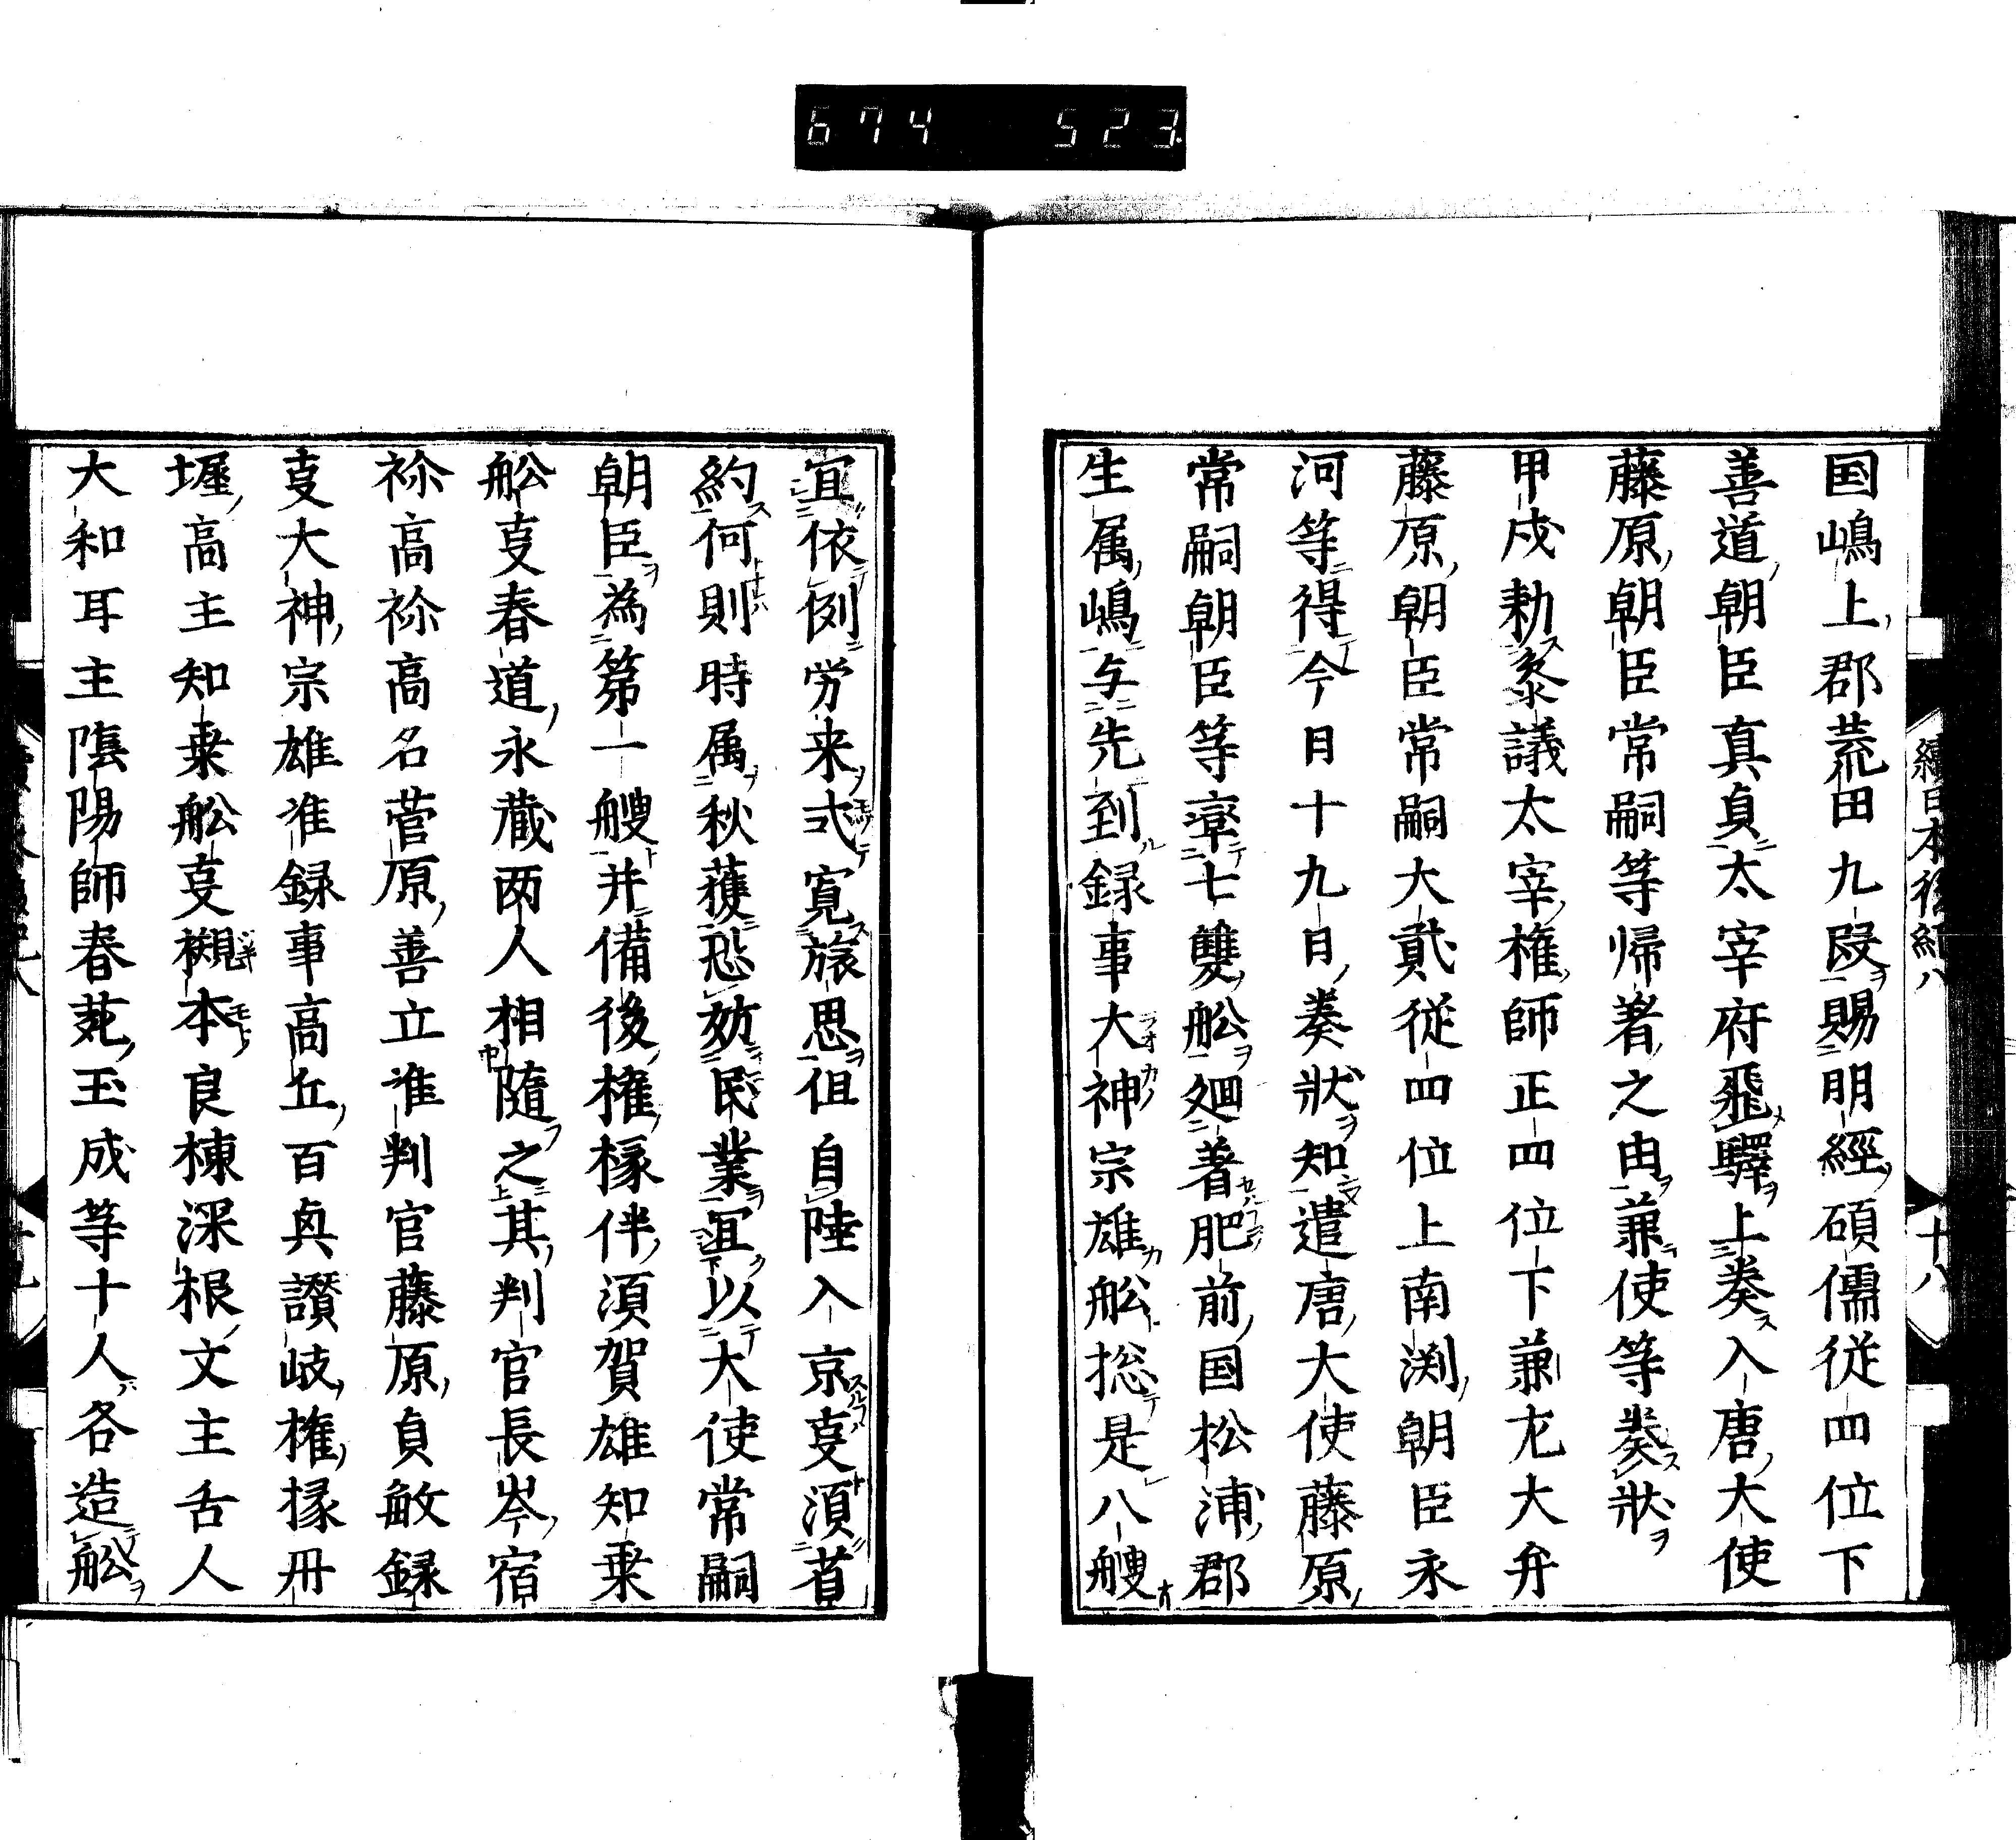 674 523
国嶋上郡荒田九段賜明經碩儒従四位下
善道朝臣真貞太宰府飛驛上奏入唐大使
藤原朝臣常嗣等帰着之由兼使等奏状
甲戌勅参議太宰権師正四位下兼左大弁
藤原朝臣常嗣大貳従四位上南渕朝臣永
河等得今月十九日奏状知遣唐大使藤原
常嗣朝臣等率七雙舩廻着肥前国松浦郡
生属嶋与先到録事大神宗雄舩惣是八艘
續日本後紀八 十八
宜依例労来式寛旅思但自陸入京事須省
約何則時属秋獲恐妨民業宜以大使常嗣
朝臣為第一艘并備後権掾伴須賀雄知乗
舩事春道永蔵两人相随之其判官長岑宿
祢高祢高名菅原善立准判官藤原貞敏録
事大神宗雄准録事高丘百興讃岐権掾丹
墀高主知乗舩事槻本良棟深根文主舌人
大和耳主陰陽師春苑玉成等十人各造舩